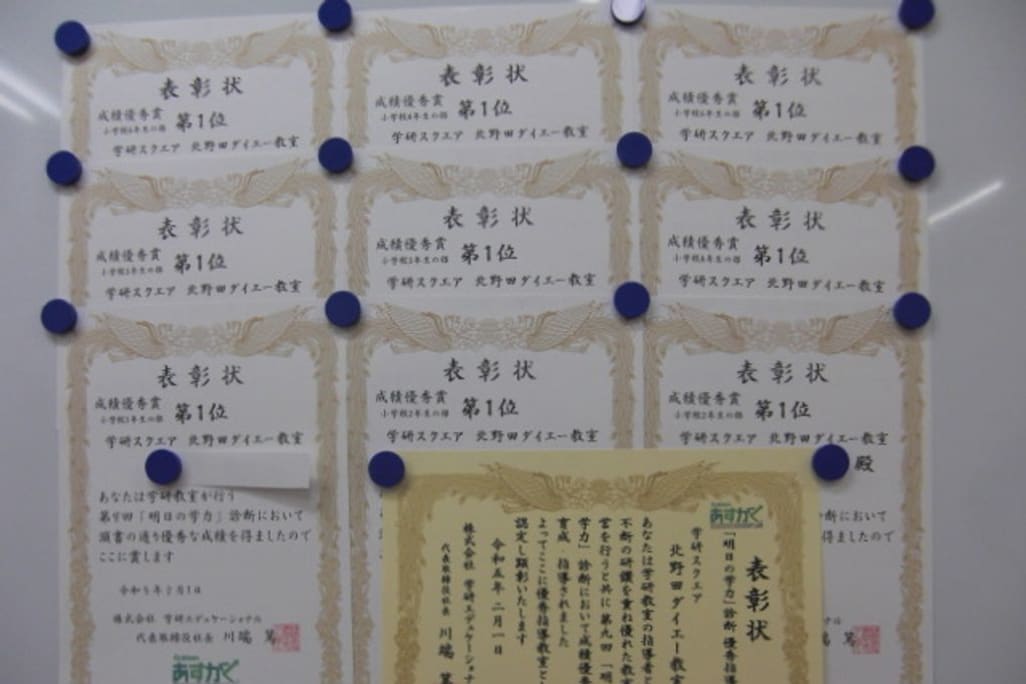 表彰状
成績優秀賞 第1位
小学校6年生の部
学研スクエア 北野田ダイエー教室
表彰状
成績優秀賞 第1位
学研スクエア 北野田ダイエー教室
表彰状
成績優秀賞 第1位
学研スクエア 北野田ダイエー教室
表彰状
成績優秀賞 第1位
学研スクエア 北野田ダイエー教室
表彰状
成績優秀賞 第1位
学研スクエア 北野田ダイエー教室
表彰状
成績優秀賞 第1位
学研スクエア 北野田ダイエー教室
表彰状
成績優秀賞 第1位
学研スクエア 北野田ダイエー教室
あなたは学研教室が行う
第9回「明日の学力」診断において
頭書の通り優秀な成績を得ましたので
ここに賞します
令和5年2月1日
株式会社 学研エデュケーショナル
代表取締役社長 川端 篤
あすがく
表彰状
成績優秀賞 第1位
小学校2年生の部
学研スクエア 北野田ダイエー教室
表彰状
成績優秀賞 第1位
小学校2年生の部
学研スクエア 北野田ダイエー教室
殿
診断において
得ましたので
ナル
篤
あすがく
表彰状
「明日の学力」診断 優秀指導
学研スクエア
北野田ダイエー教室
あなたは学研教室の指導者と
不断の研鑽を重ね優れた教室
営を行うと共に第九回「明
学力」診断において成績優
育成・指導されました
よってここに優秀指導教室と
認定し顕彰いたします
令和五年 二月一日
株式会社 学研エデュケーショナ
代表取締役社長 川端 篤